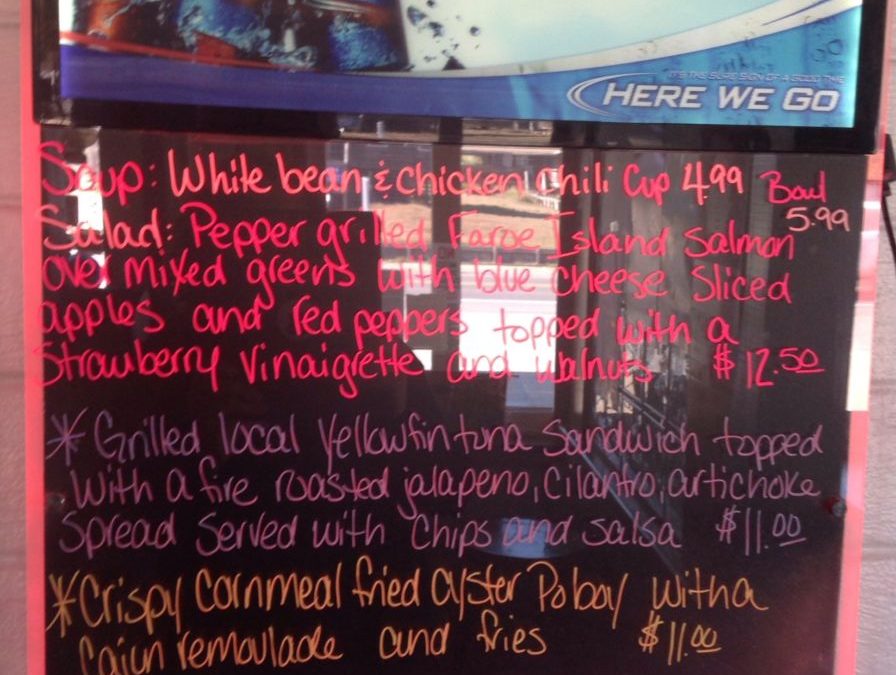 IT'S THE SURE SIGN OF A GOOD TIME
HERE WE GO
Soup: White bean & chicken chili Cup 4.99 Bowl
5.99
Salad: Pepper grilled Faroe Island Salmon
over mixed greens with blue cheese Sliced
apples and red peppers topped with a
Strawberry Vinaigrette and walnuts $12.50
*Grilled local Yellowfin tuna Sandwich topped
With a fire roasted jalapeno, cilantro, artichoke
Spread Served with Chips and salsa $11.00
*Crispy Cornmeal fried oyster Poboy with a
Cajun remoulade and fries $11.00